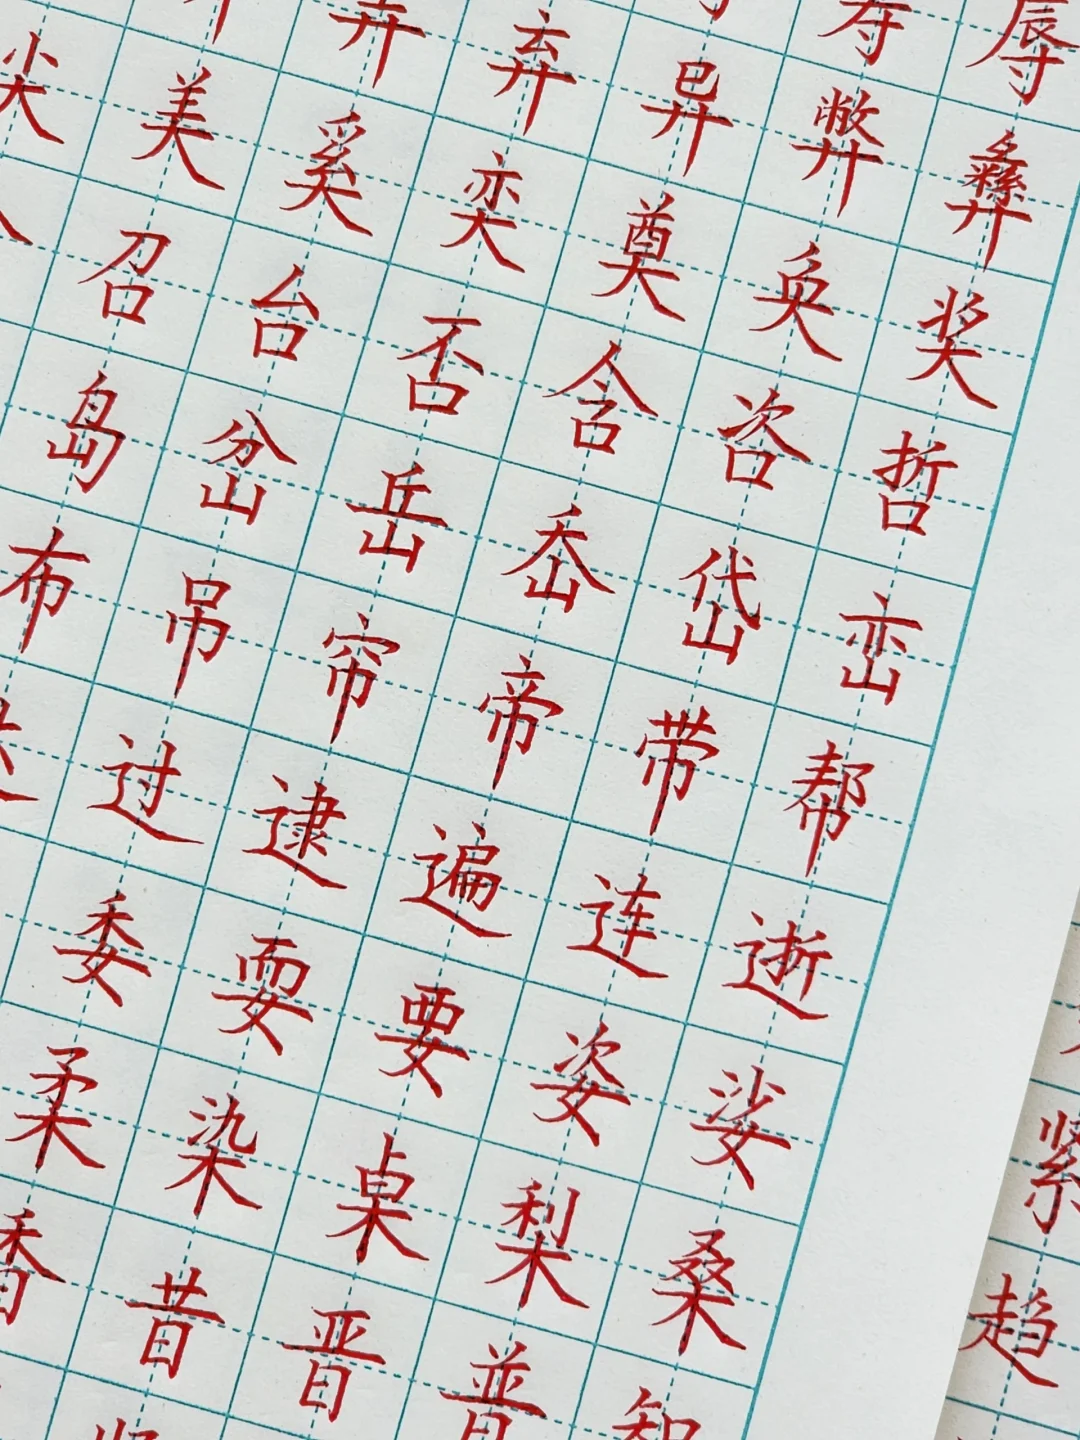 寿辱
弃异弊彝
尖美奚奕奠奂奖
召台否含咨哲
岛岔岳岙岱峦
布吊帘帝带帮
过逮遍连逝
委耍要姿娑
柔染桌梨桑
香昔晋普
紧
趋